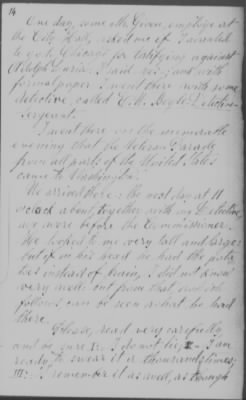 14
One day, some Mr. Given, employe at
the City Hall, asked me if I wanted
to go to Chicago for testifying against
Adolph Luria. I said yes; and with
formal paper I went there with some
detective, called C. H. Boyle Detective-
Sergeant.
I went there in the memorable
evening that the Veteran Parade
from all parts of the United States
came to Washington.
We arrived there; the next day at 11
o'clock about, together with my Detective,
we were before the Commissioner.
He looked to me very tall and large
but if in his head he had the
instead of brain, I did not know
very well but from that which
follows, can be seen what he had
there.
Please, read very carefully
and be sure I do not lie, I am
ready to swear it a thousand times;
I remember it as well, as though